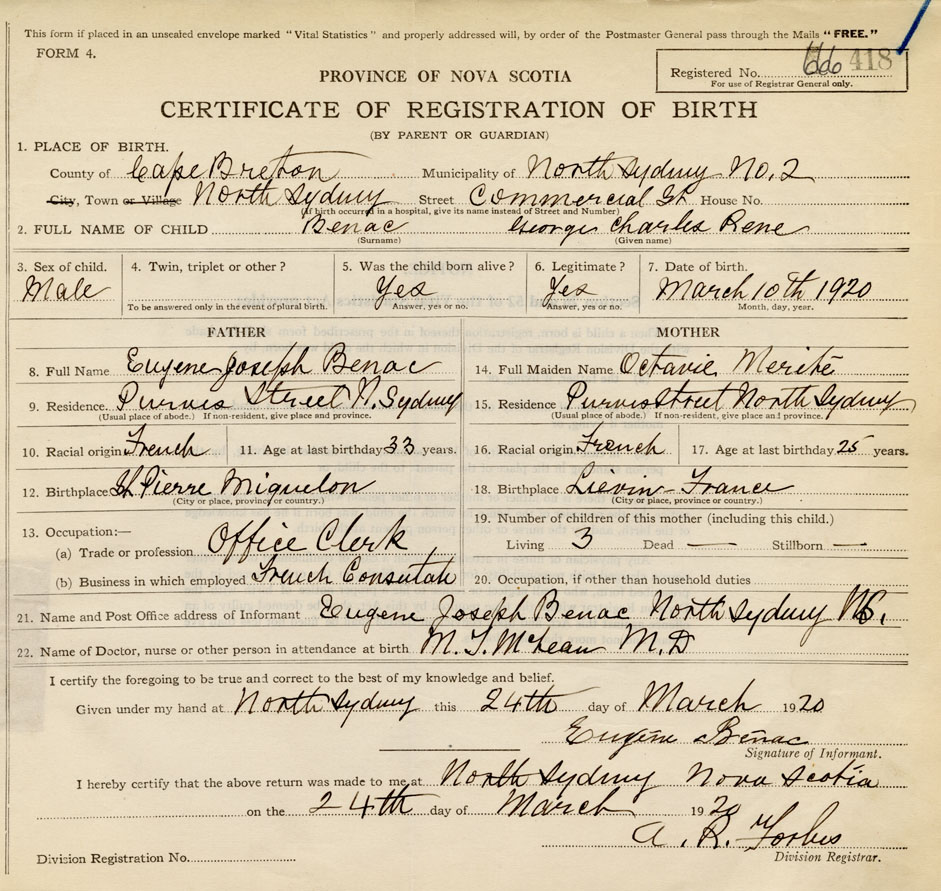 This form if placed in an unsealed envelope marked "Vital Statistics" and properly addressed will, by order of the Postmaster General pass through the Mails "FREE."
FORM 4.
Registered No. 666 418
For use of Registrar General only.
PROVINCE OF NOVA SCOTIA
CERTIFICATE OF REGISTRATION OF BIRTH
(BY PARENT OR GUARDIAN)
1. PLACE OF BIRTH.
County of Cape Breton Municipality of North Sydney No. 2
City, Town or Village North Sydney Street Commercial St House No.
(If birth occurred in a hospital, give its name instead of Street and Number)
2. FULL NAME OF CHILD Benac George Charles Rene
(Surname) (Given name)
3. Sex of child. 4. Twin, triplet or other? 5. Was the child born alive? 6. Legitimate? 7. Date of birth.
Male Yes Yes March 10th 1920
To be answered only in the event of plural birth. Answer, yes or no. Answer, yes or no. Month, day, year.
FATHER MOTHER
8. Full Name Eugene Joseph Benac 14. Full Maiden Name Octavie Merité
9. Residence. Purvis Street N. Sydney 15. Residence Purvis Street North Sydney
(Usual place of abode.) If non-resident, give place and province. (Usual place of abode.) If non-resident, give place and province.
10. Racial origin French 11. Age at last birthday 33 years. 16. Racial origin French 17. Age at last birthday 25 years.
12. Birthplace St Pierre Miquelon 18. Birthplace Lievin - France
(City or place, province or country.) (City or place, province or country.)
13. Occupation:— 19. Number of children of this mother (including this child.)
(a) Trade or profession Office Clerk Living 3 Dead — Stillborn —
(b) Business in which employed French Consulate 20. Occupation, if other than household duties
21. Name and Post Office address of Informant Eugene Joseph Benac North Sydney N.S.
22. Name of Doctor, nurse or other person in attendance at birth M. T. McLean M.D
I certify the foregoing to be true and correct to the best of my knowledge and belief.
Given under my hand at North Sydney this 24th day of March 1920
Eugene Benac
Signature of Informant.
I hereby certify that the above return was made to me at North Sydney Nova Scotia
on the 24th day of March 1920
A. R. Forbes
Division Registration No. Division Registrar.